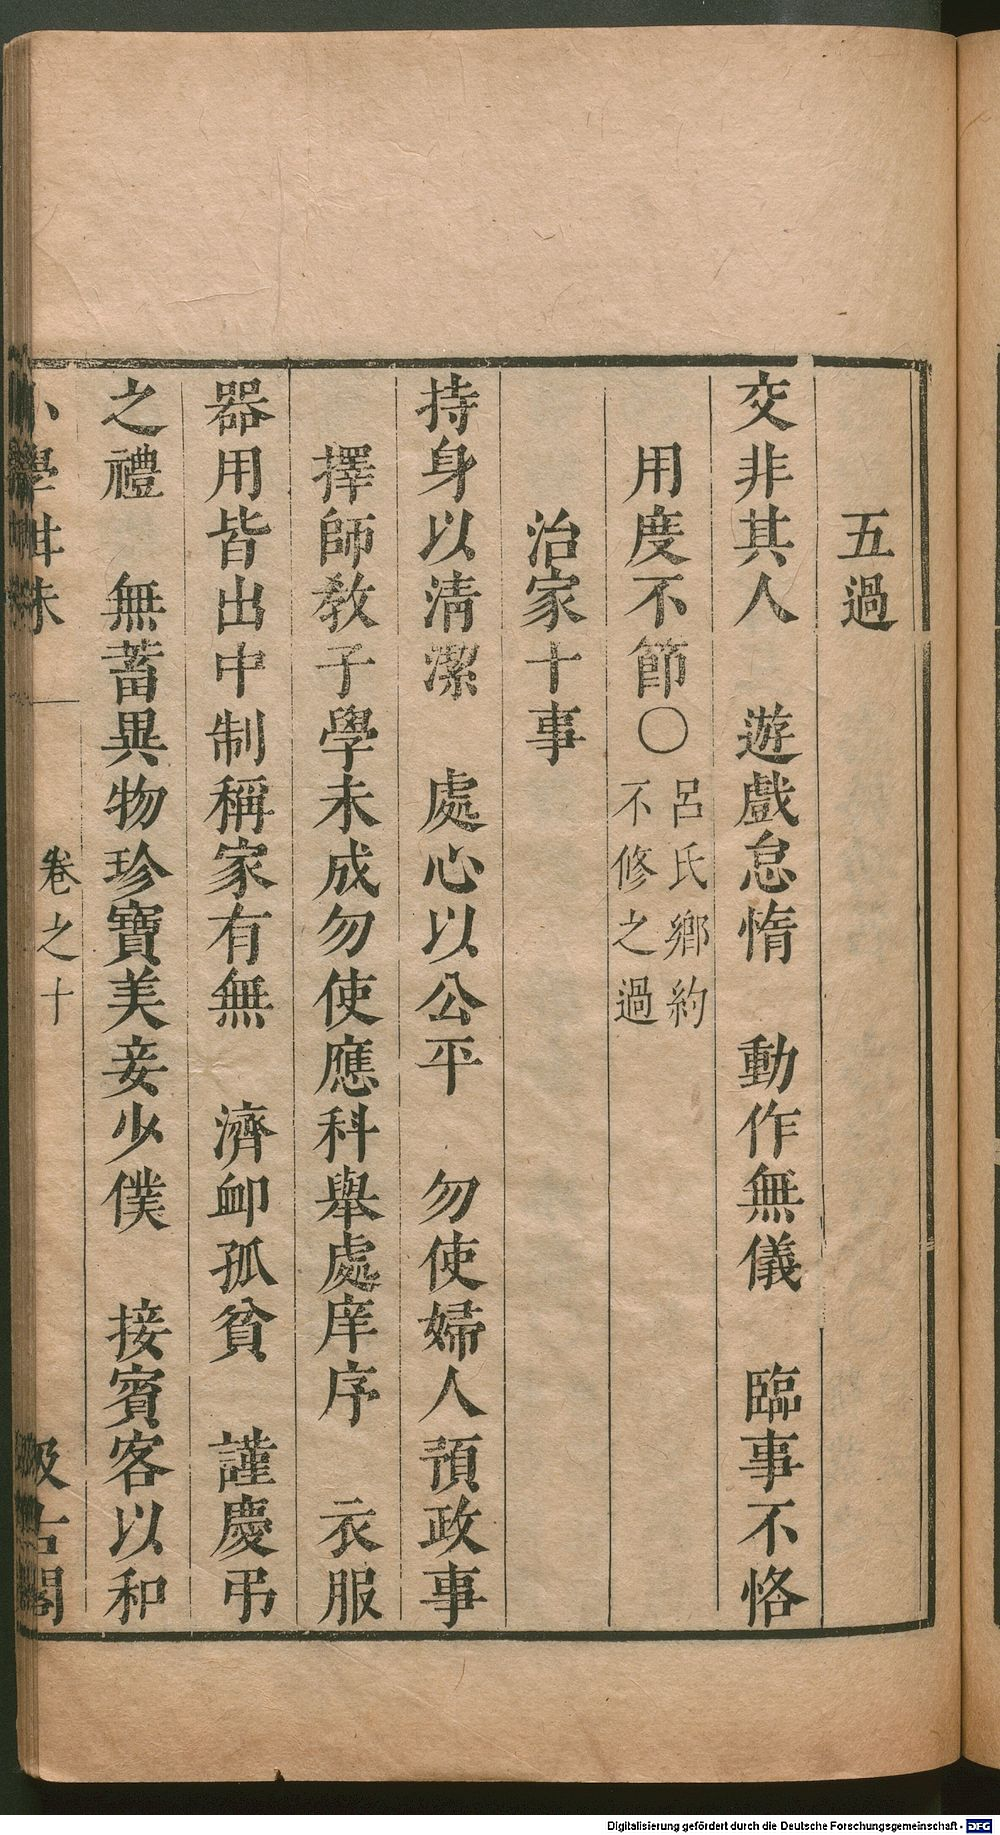 五過
交非其人　遊戲怠惰　動作無儀　臨事不恪
用度不節〇呂氏鄉約
不修之過
治家十事
持身以清潔　處心以公平　勿使婦人預政事
擇師敎子學未成勿使應科舉處庠序　衣服
器用皆出中制稱家有無　濟卹孤貧　謹慶弔
之禮　無蓄異物珍寶美妾少僕　接賓客以和
小學紺珠　卷之十　汲古閣
Digitalisierung gefördert durch die Deutsche Forschungsgemeinschaft - DFG